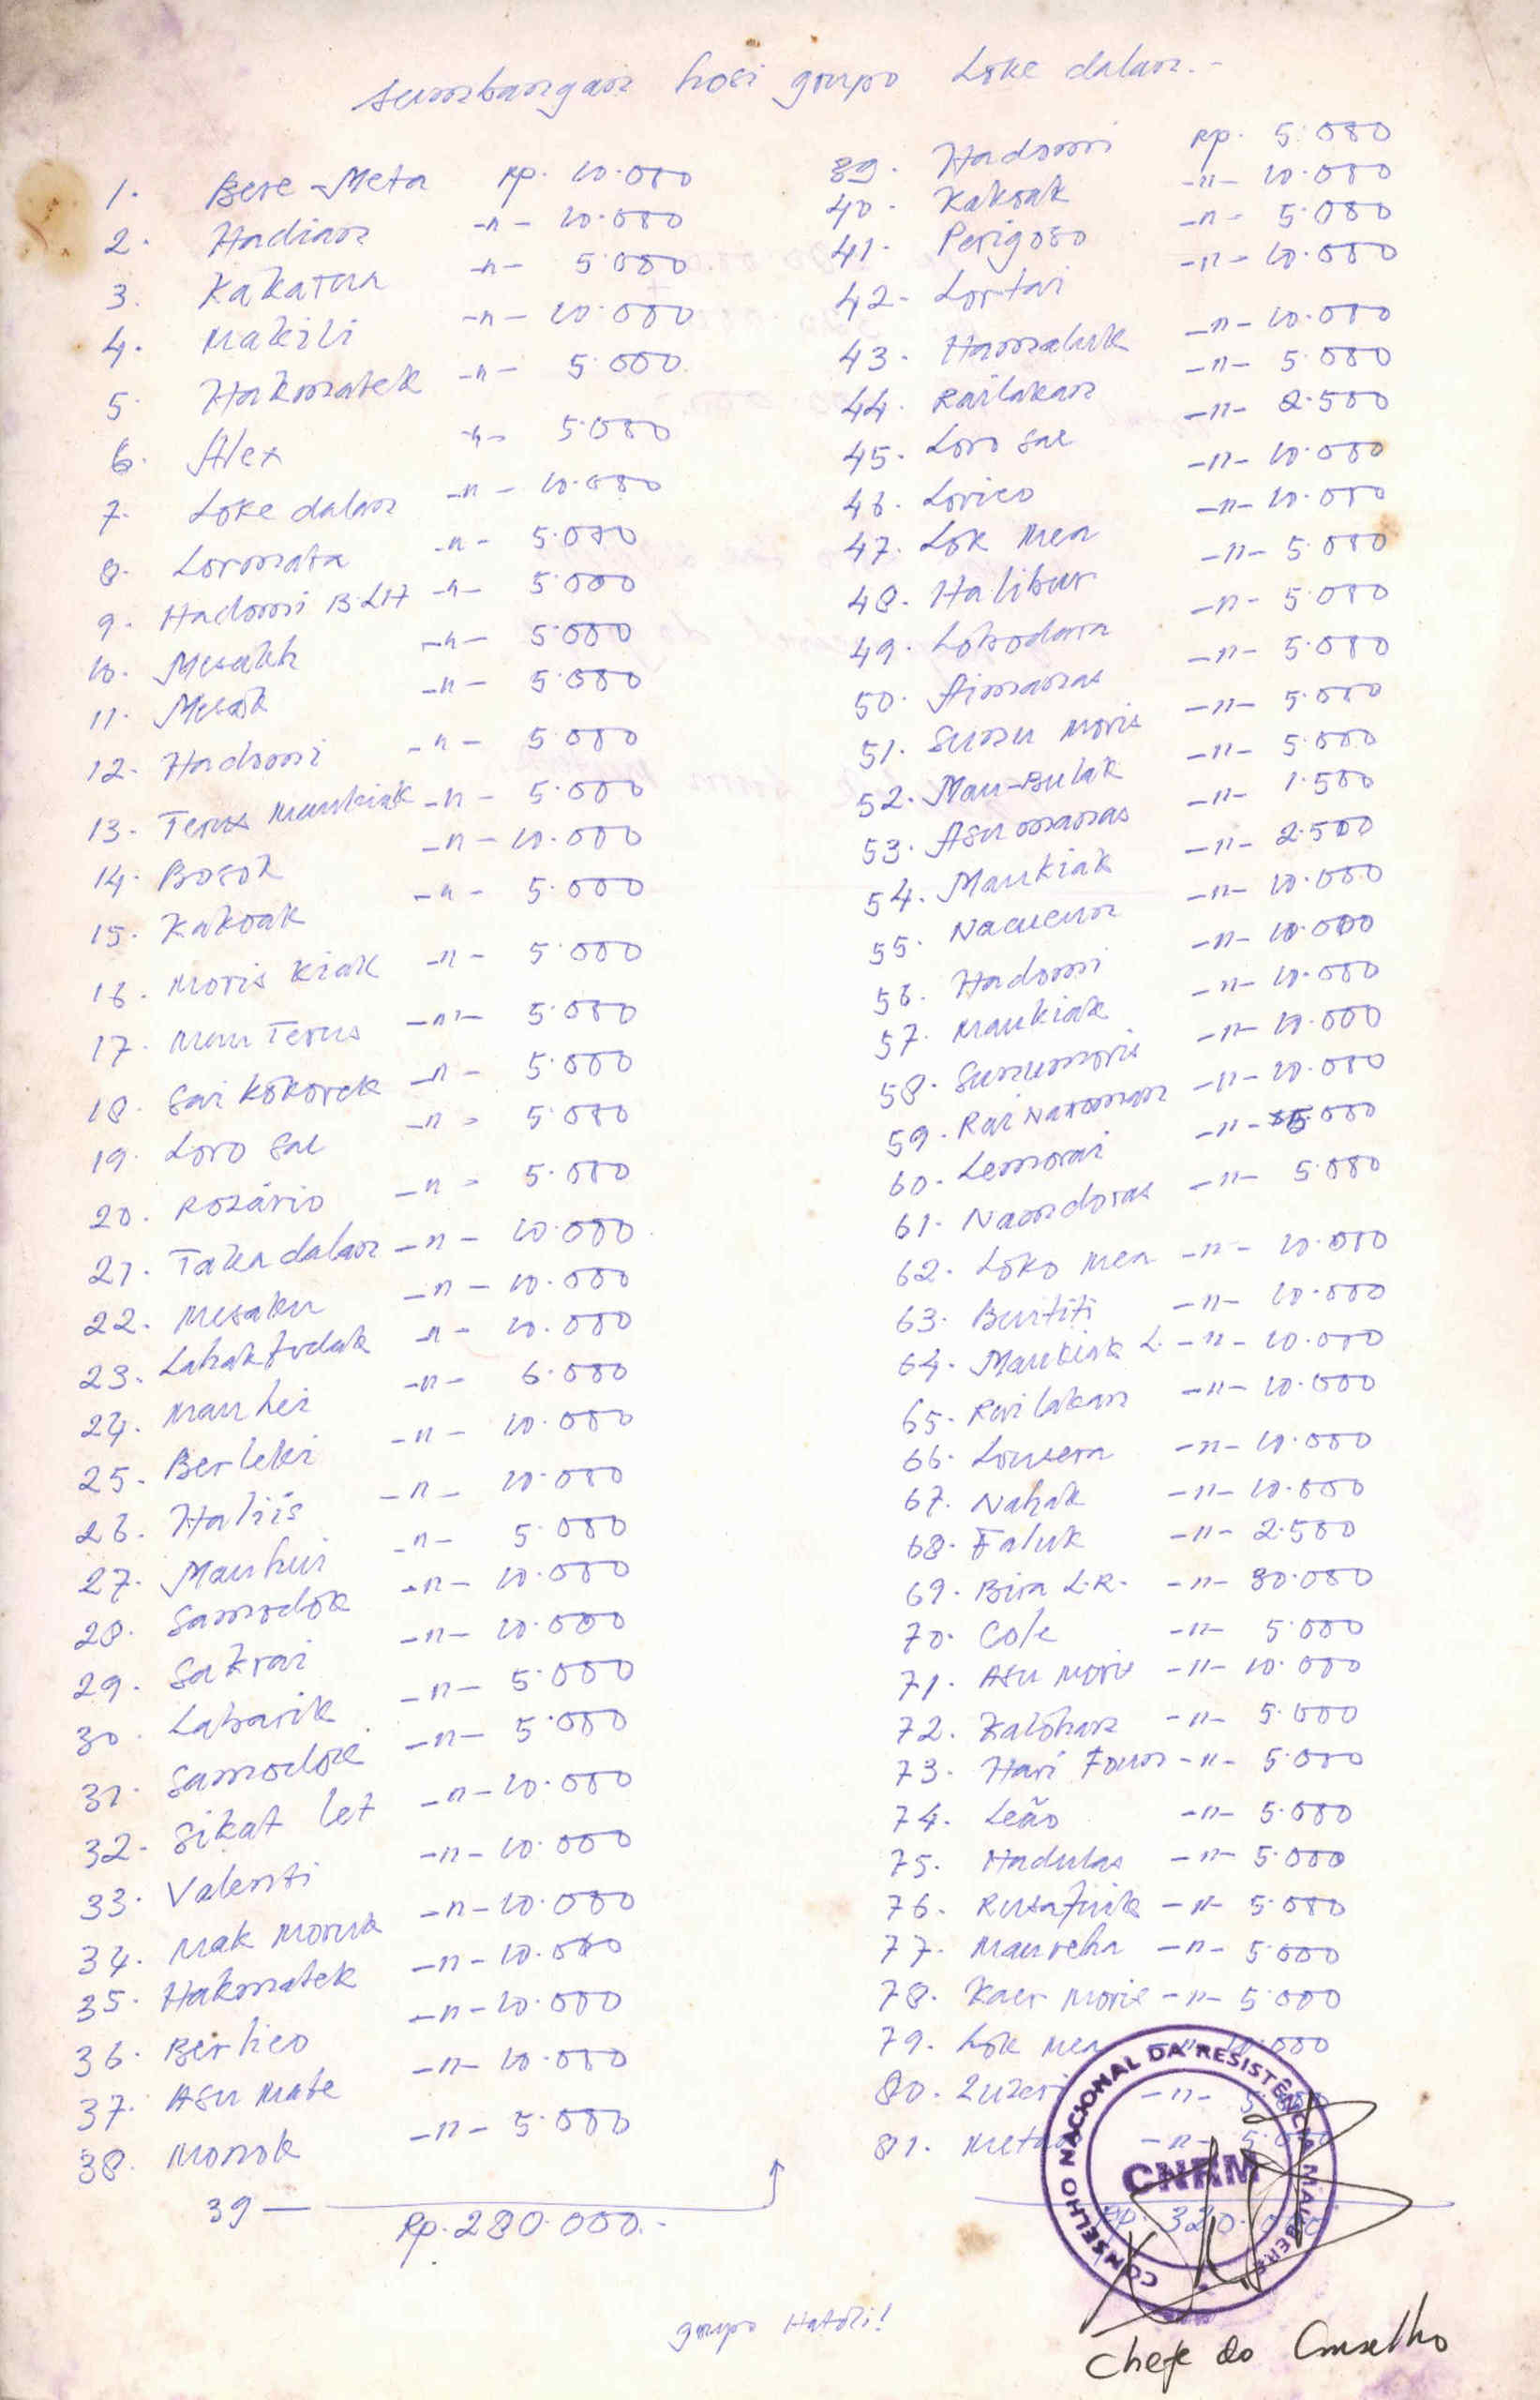 Sumbangan hosi grupo Loke dalan.-
1. Bere-Meta Rp. 10.000
2. Hadian -n- 10.000
3. Kakatua -n- 5.000
4. Makili -n- 10.000
5. Hakmatek -n- 5.000
6. Alex -n- 5.000
7. Loke dalan -n- 10.000
8. Loromata -n- 5.000
9. Hadomi B.LH -n- 5.000
10. Mesakh -n- 5.000
11. Mesak -n- 5.000
12. Hadomi -n- 5.000
13. Terus Maukiak -n- 5.000
14. Bosok -n- 10.000
15. Kakoak -n- 5.000
16. Moris kiak -n- 5.000
17. Mau Terus -n- 5.000
18. Sai kokorek -n- 5.000
19. Loro Sae -n- 5.000
20. Rozário -n- 5.000
21. Taka dalan -n- 10.000
22. Mesaku -n- 10.000
23. Lahak fudak -n- 10.000
24. Mauhei -n- 6.000
25. Berleki -n- 10.000
26. Haliis -n- 10.000
27. Mauhui -n- 5.000
28. Samodok -n- 10.000
29. Sakrai -n- 10.000
30. Labarik -n- 5.000
31. Samodok -n- 5.000
32. Sikat let -n- 10.000
33. Valenti -n- 10.000
34. Mak Moruk -n- 10.000
35. Hakmatek -n- 10.000
36. Berlico -n- 10.000
37. Asu Mate -n- 10.000
38. Monok -n- 5.000
39 —
Rp. 280.000.-
39. Hadomi Rp. 5.000
40. Kakoak -n- 10.000
41. Perigoso -n- 5.000
42. Lortai -n- 10.000
43. Hamaluk -n- 10.000
44. Railakan -n- 5.000
45. Loro Sae -n- 2.500
46. Lorico -n- 10.000
47. Lok Mea -n- 10.000
48. Halibur -n- 5.000
49. Lobodara -n- 5.000
50. Aimanas -n- 5.000
51. Sunu Moris -n- 5.000
52. Mau-Bulak -n- 5.000
53. Asu manas -n- 1.500
54. Maukiak -n- 2.500
55. Nacueun -n- 10.000
56. Hadomi -n- 10.000
57. Maukiak -n- 10.000
58. Sunumoris -n- 10.000
59. Rai Naroman -n- 10.000
60. Lemorai -n- 5.000
61. Namdoras -n- 5.000
62. Loko Mea -n- 10.000
63. Buititi -n- 10.000
64. Maukiak L. -n- 10.000
65. Railakan -n- 10.000
66. Lousera -n- 10.000
67. Nahak -n- 10.000
68. Faluk -n- 2.500
69. Bira L.R. -n- 30.000
70. Cole -n- 5.000
71. Asu Moris -n- 10.000
72. Kalohan -n- 5.000
73. Hari Foun -n- 5.000
74. Leão -n- 5.000
75. Hadulas -n- 5.000
76. Rusafuik -n- 5.000
77. Maureha -n- 5.000
78. Kaer Moris -n- 5.000
79. Lok Mea -n- 10.000
80. Luzeri -n- 5.000
81. -n- 5.000
Rp. 320.000
CONSELHO NACIONAL DA RESISTÊNCIA MAUBERE
CNRM
grupo Hatoli!
Chefe do Conselho